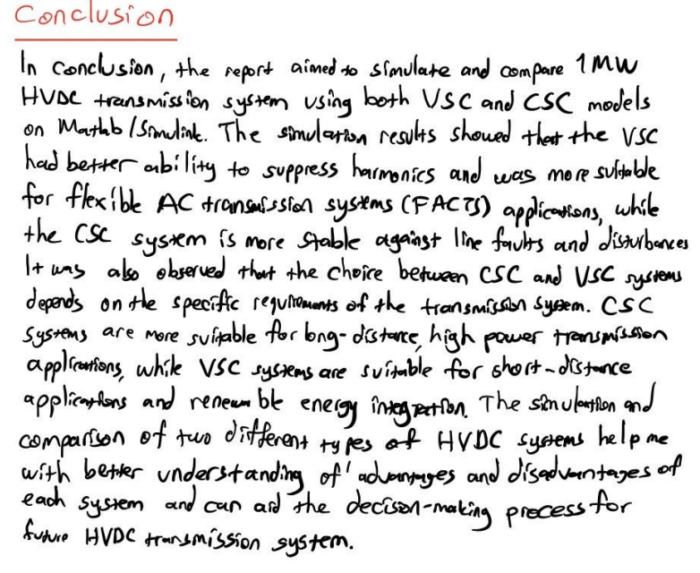 Conclusion
In conclusion, the report aimed to simulate and compare 1MW
HVDC transmission system using both VSC and CSC models
on Matlab/Simulink. The simulation results showed that the VSC
had better ability to suppress harmonics and was more suitable
for flexible AC transmission systems (FACTS) applications, while
the CSC system is more stable against line faults and disturbances
It was also observed that the choice between CSC and VSC systems
depends on the specific requirements of the transmission system. CSC
systems are more suitable for long-distance, high power transmission
applications, while VSC systems are suitable for short-distance
applications and renewable energy integration. The simulation and
comparison of two different types of HVDC systems help me
with better understanding of advantages and disadvantages of
each system and can aid the decison-making process for
future HVDC transmission system.